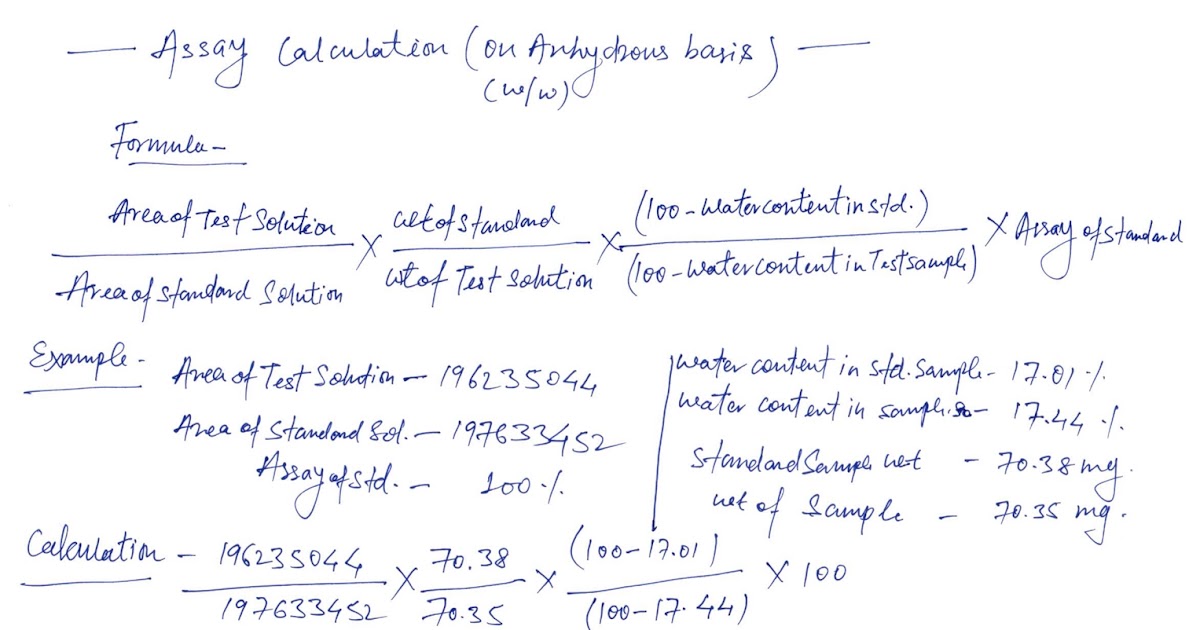 — Assay Calculation (on Anhydrous basis) —
(w/w)
Formula -
Area of Test Solution / Area of Standard Solution × wt of standard / wt of Test Solution × (100 - Water content in std.) / (100 - Water content in Test sample) × Assay of Standard
Example - Area of Test Solution - 196235044
Area of Standard Sol. - 197633452
Assay of Std. - 100 %
water content in std. sample - 17.01 %
water content in sample - 17.44 %
Standard Sample wet - 70.38 mg.
wet of Sample - 70.35 mg.
Calculation - 196235044 / 197633452 × 70.38 / 70.35 × (100-17.01) / (100-17.44) × 100